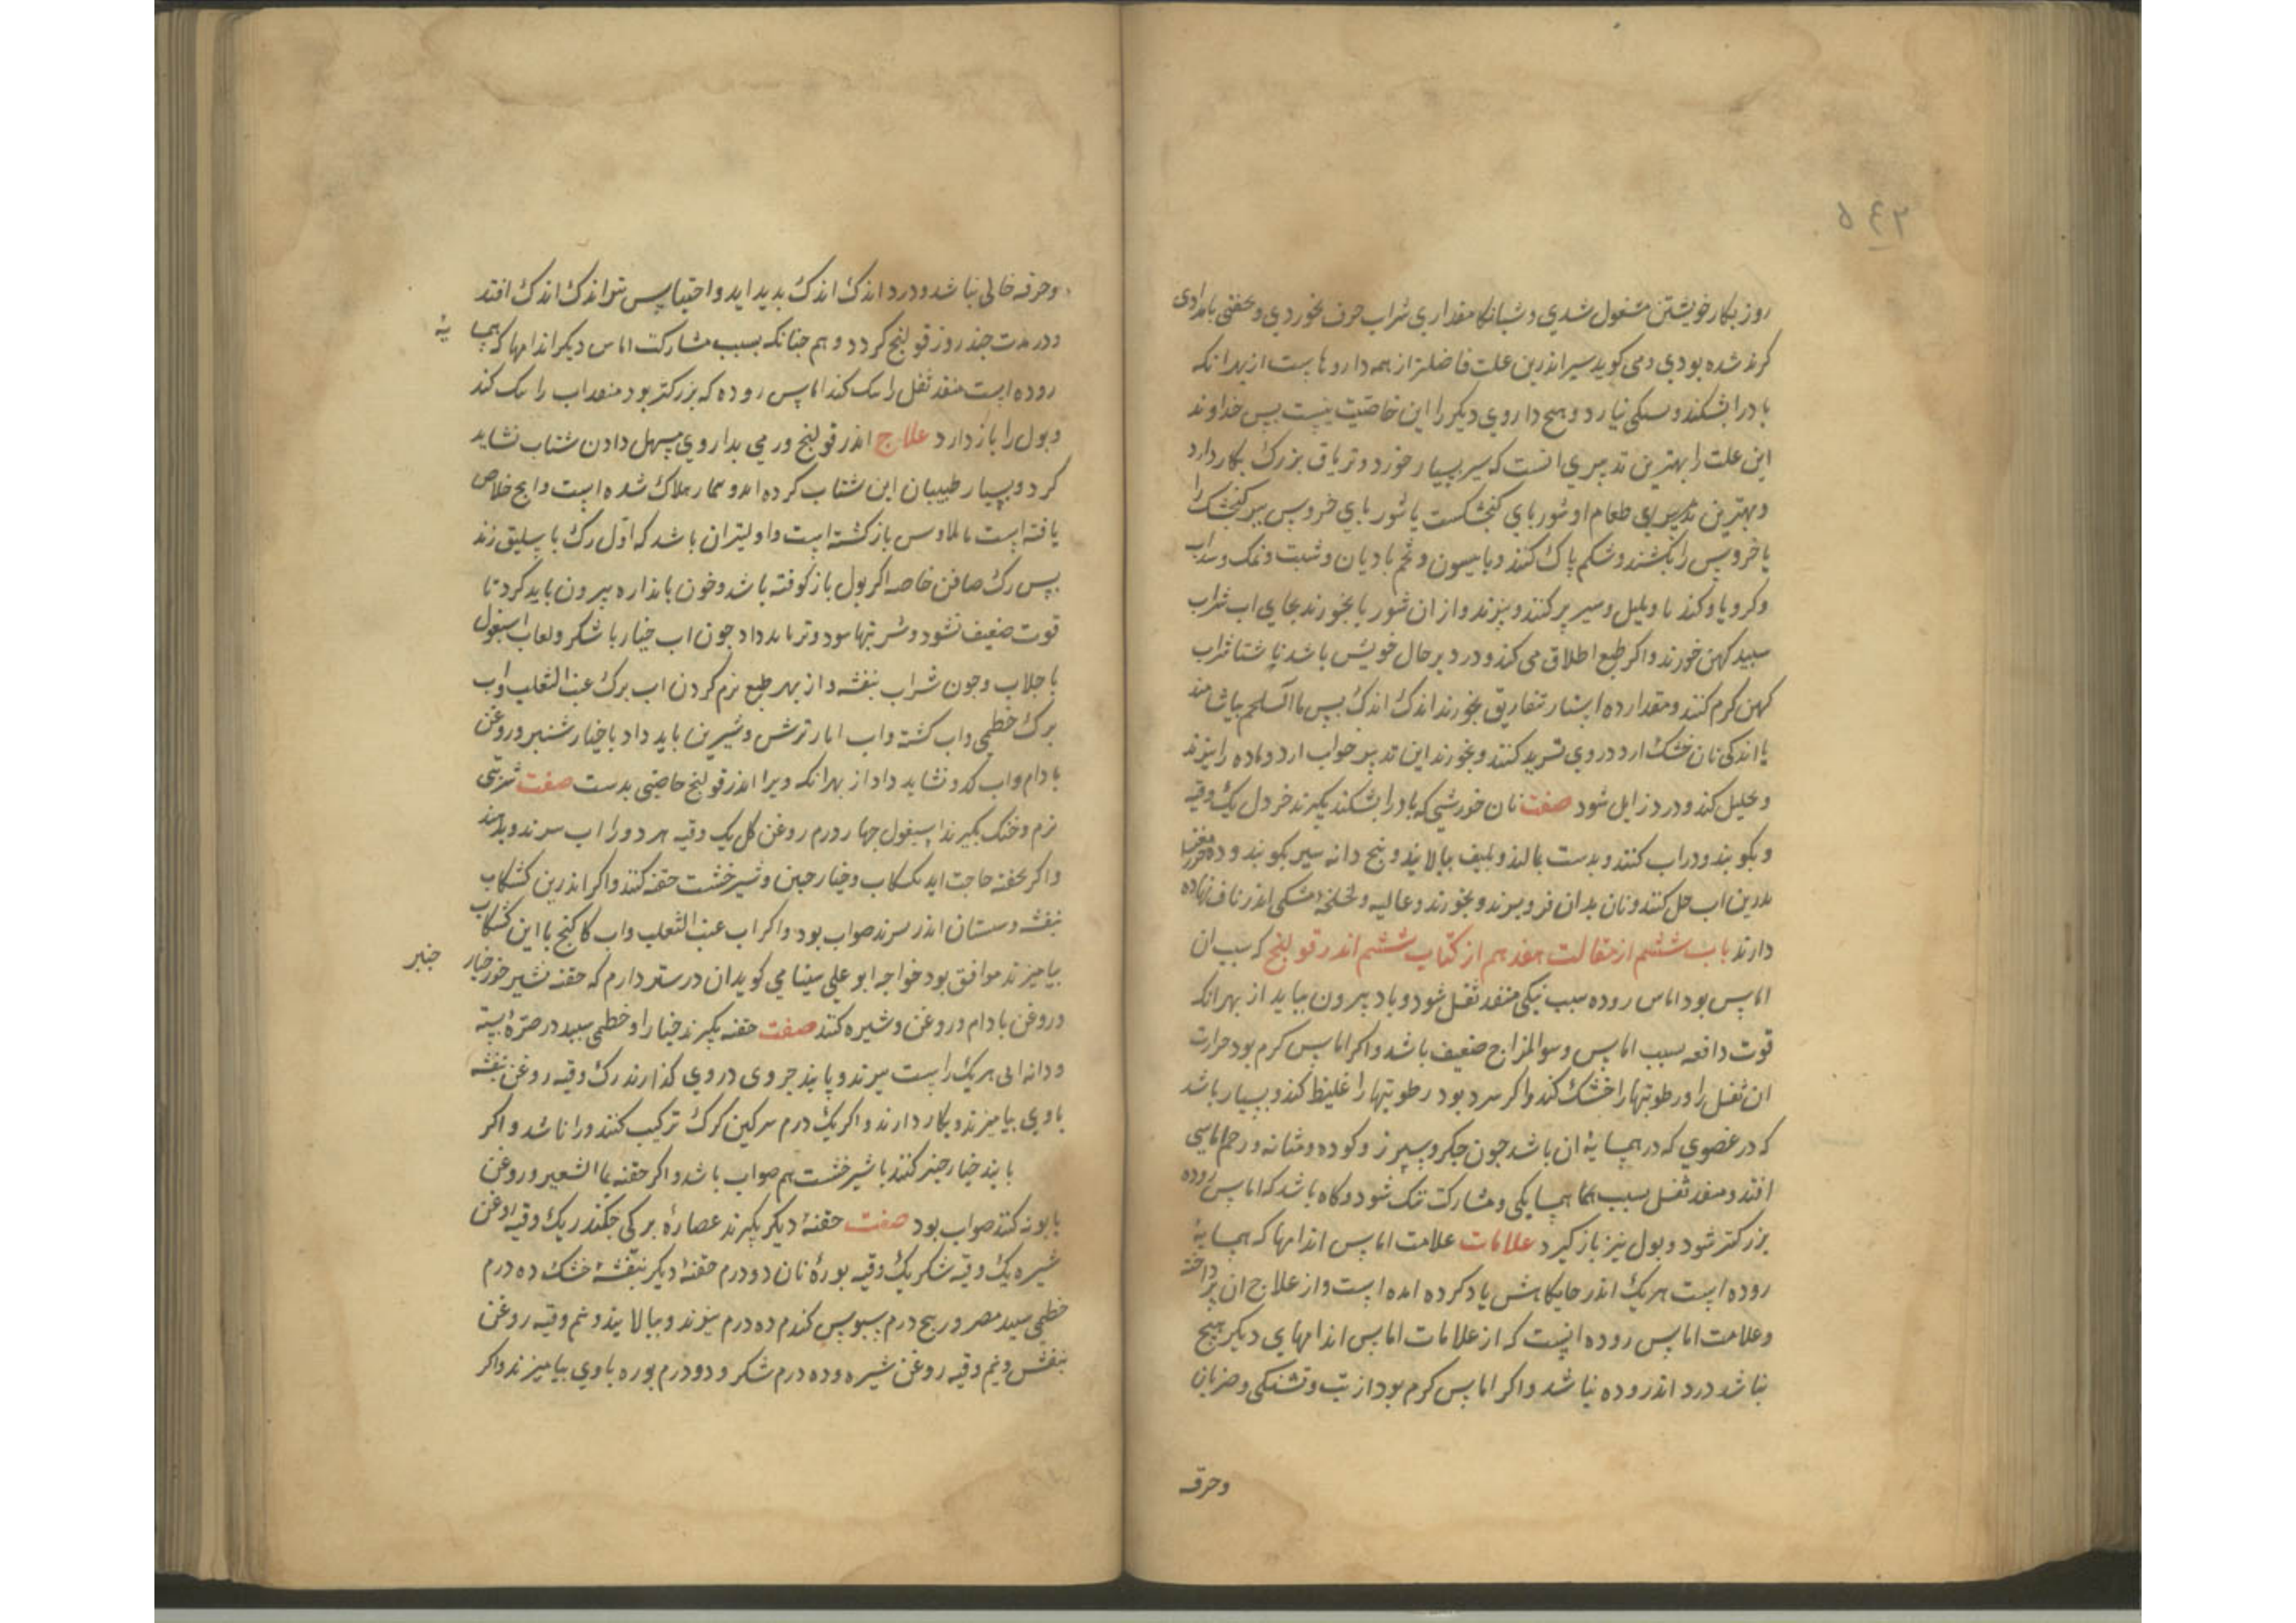 ۵۴۲
روز بکار خویشتن مشغول شدی و شبانکا مقداری شراب صرف بخوردی و بخفتی بامدادی
کرند شده بودی و می کوید سیر اندرین علت فاضلتر از همه داروهاست از بهر انکه
بادرا بشکند و سکی نیارد و هیچ داروی دیکر را این خاصیت نیست پس خداوند
این علت را بهترین تدبیری انست که سیر بسیار خورد و تریاق بزرک بکار دارد
و بهترین تدبیری طعام او شوربای کنجشکست یا شوربای خروس پیر کنجشک را
یا خروس را بکشند و شکم پاک کنند و بانیسون و تخم بادیان و شبت و نمک و سداب
و کرویا و کندنا و پلپل و سیر پر کنند و بپزند و از ان شوربا بخورند بجای اب شراب
سپید کهن خورند و اکر طبع اطلاق می کند و درد بر حال خویش باشد ناشتا شراب
کهن کرم کنند و مقدار ده استار بتفاریق بخورند اندک اندک پس ما السلجم بیاشامند
یا اندکی نان خشک ارد در وی ترید کنند و بخورند این تدبیر خواب ارد و ماده را بپزند
و تحلیل کند و درد زایل شود صفت نان خورشی که بادرا بشکند بکیرند خردل یک وقیه
و بکوبند و در اب کنند و بدست بمالند و بلیف بپالایند و پنج دانه سیر بکوبند و ده مغز
بدرین اب حل کنند و نان بدان فرو برند و بخورند و غالیه و لخلخه مشکی اندر ناف نهاده
دارند باب ششم از مقالت هفدهم از کتاب ششم اندر قولنج که سبب ان
اماس بود اماس روده سبب تنکی منفذ ثفل شود و باد بیرون نیاید از بهر انکه
قوت دافعه بسبب اماس و سو المزاج ضعیف باشد و اکر اماس کرم بود حرارت
ان ثفل را و رطوبتها را خشک کند و اکر سرد بود رطوبتها را غلیظ کند و بسیار باشد
که در عضوی که در همسایهٔ ان باشد چون جکر و سپرز و کوده و مثانه و رحم اماسی
افتد و منفذ ثفل بسبب همسایکی و مشارکت تنک شود و کاه باشد که اماس روده
بزرکتر شود و بول نیز باز کیرد علامات علامت اماس اندامها که همسایهٔ
روده است هر یک اندر جایکاهش یاد کرده امده است و از علاج ان پرداخته
و علامت اماس روده انست که از علامات اماس اندامهای دیکر هیچ
نباشد درد اندر روده نباشد و اکر اماس کرم بود از تب و تشنکی و ضربان
وحرقه
وحرقه خالی نباشد و درد اندک اندک بدید اید و احتباس نیز اندک اندک افتد
و در مدت چند روز قولنج کردد و هم چنانکه بسبب مشارکت اماس دیکر اندامها که همسا
یهٔ
روده است منفذ ثفل را تنک کند اماس روده که بزرکتر بود منفذ اب را تنک کند
و بول را باز دارد علاج اندر قولنج ورمی بداروی مسهل دادن شتاب نشاید
کرد و بسیار طبیبان این شتاب کرده اند و بیمار هلاک شده است و انج خلاص
یافته است با یلاوس بازکشته است و اولیتر ان باشد که اول رک باسلیق زند
پس رک صافن خاصه اکر بول باز کرفته باشد و خون باندازه بیرون باید کرد تا
قوت ضعیف نشود و شربتها سرد و تر باید داد چون اب خیار با شکر و لعاب اسبغول
با جلاب و چون شراب بنفشه و از بهر طبع نرم کردن اب برک عنب الثعلب و اب
برک خطمی و اب کشنه و اب انار ترش و شیرین باید داد با خیار شنبر و روغن
بادام و اب کدو نشاید داد از بهر انکه ویرا اندر قولنج خاصیتی بدست صفت شربتی
نرم و خنک بکیرند اسبغول چهار درم روغن کل یک وقیه هر دو را اب سرند و بدهند
و اکر بحقنه حاجت اید بکشکاب و خیار چنبر و شیرخشت حقنه کنند و اکر اندرین کشکاب
بنفشه و سپستان اندر پزند صواب بود و اکر اب عنب الثعلب و اب کاکنج با این کشکاب
بیامیزند موافق بود خواجه ابو علی سینا می کوید ان درستر دارم که حقنه بشیر خر و خیار
چنبر
و روغن بادام و روغن و شیره کنند صفت حقنه بکیرند خیار را و خطمی سپید در صرهٔ بسته
و دانه ابی هریک راست بپزند و پانید جروی در وی کذارند رک وقیه روغن بنفشه
باوی بیامیزند و بکار دارند و اکر یک درم سرکین کرک ترکیب کنند ورا ناشد و اکر
بابند خیار چنبر کنند با شیرخشت هم صواب باشد و اکر حقنه بما الشعیر و روغن
بابونه کنند صواب بود صفت حقنهٔ دیکر بکیرند عصارهٔ برک چکندر یک وقیه روغن
شیره یک وقیه شکر یک وقیه بورهٔ نان دو درم حقنهٔ دیکر بنفشهٔ خشک ده درم
خطمی سپید مصرور پنج درم سبوس کندم ده درم بپزند و بپالایند و نیم وقیه روغن
بنفش و نیم وقیه روغن شیره و ده درم شکر و دو درم بوره باوی بیامیزند و اکر